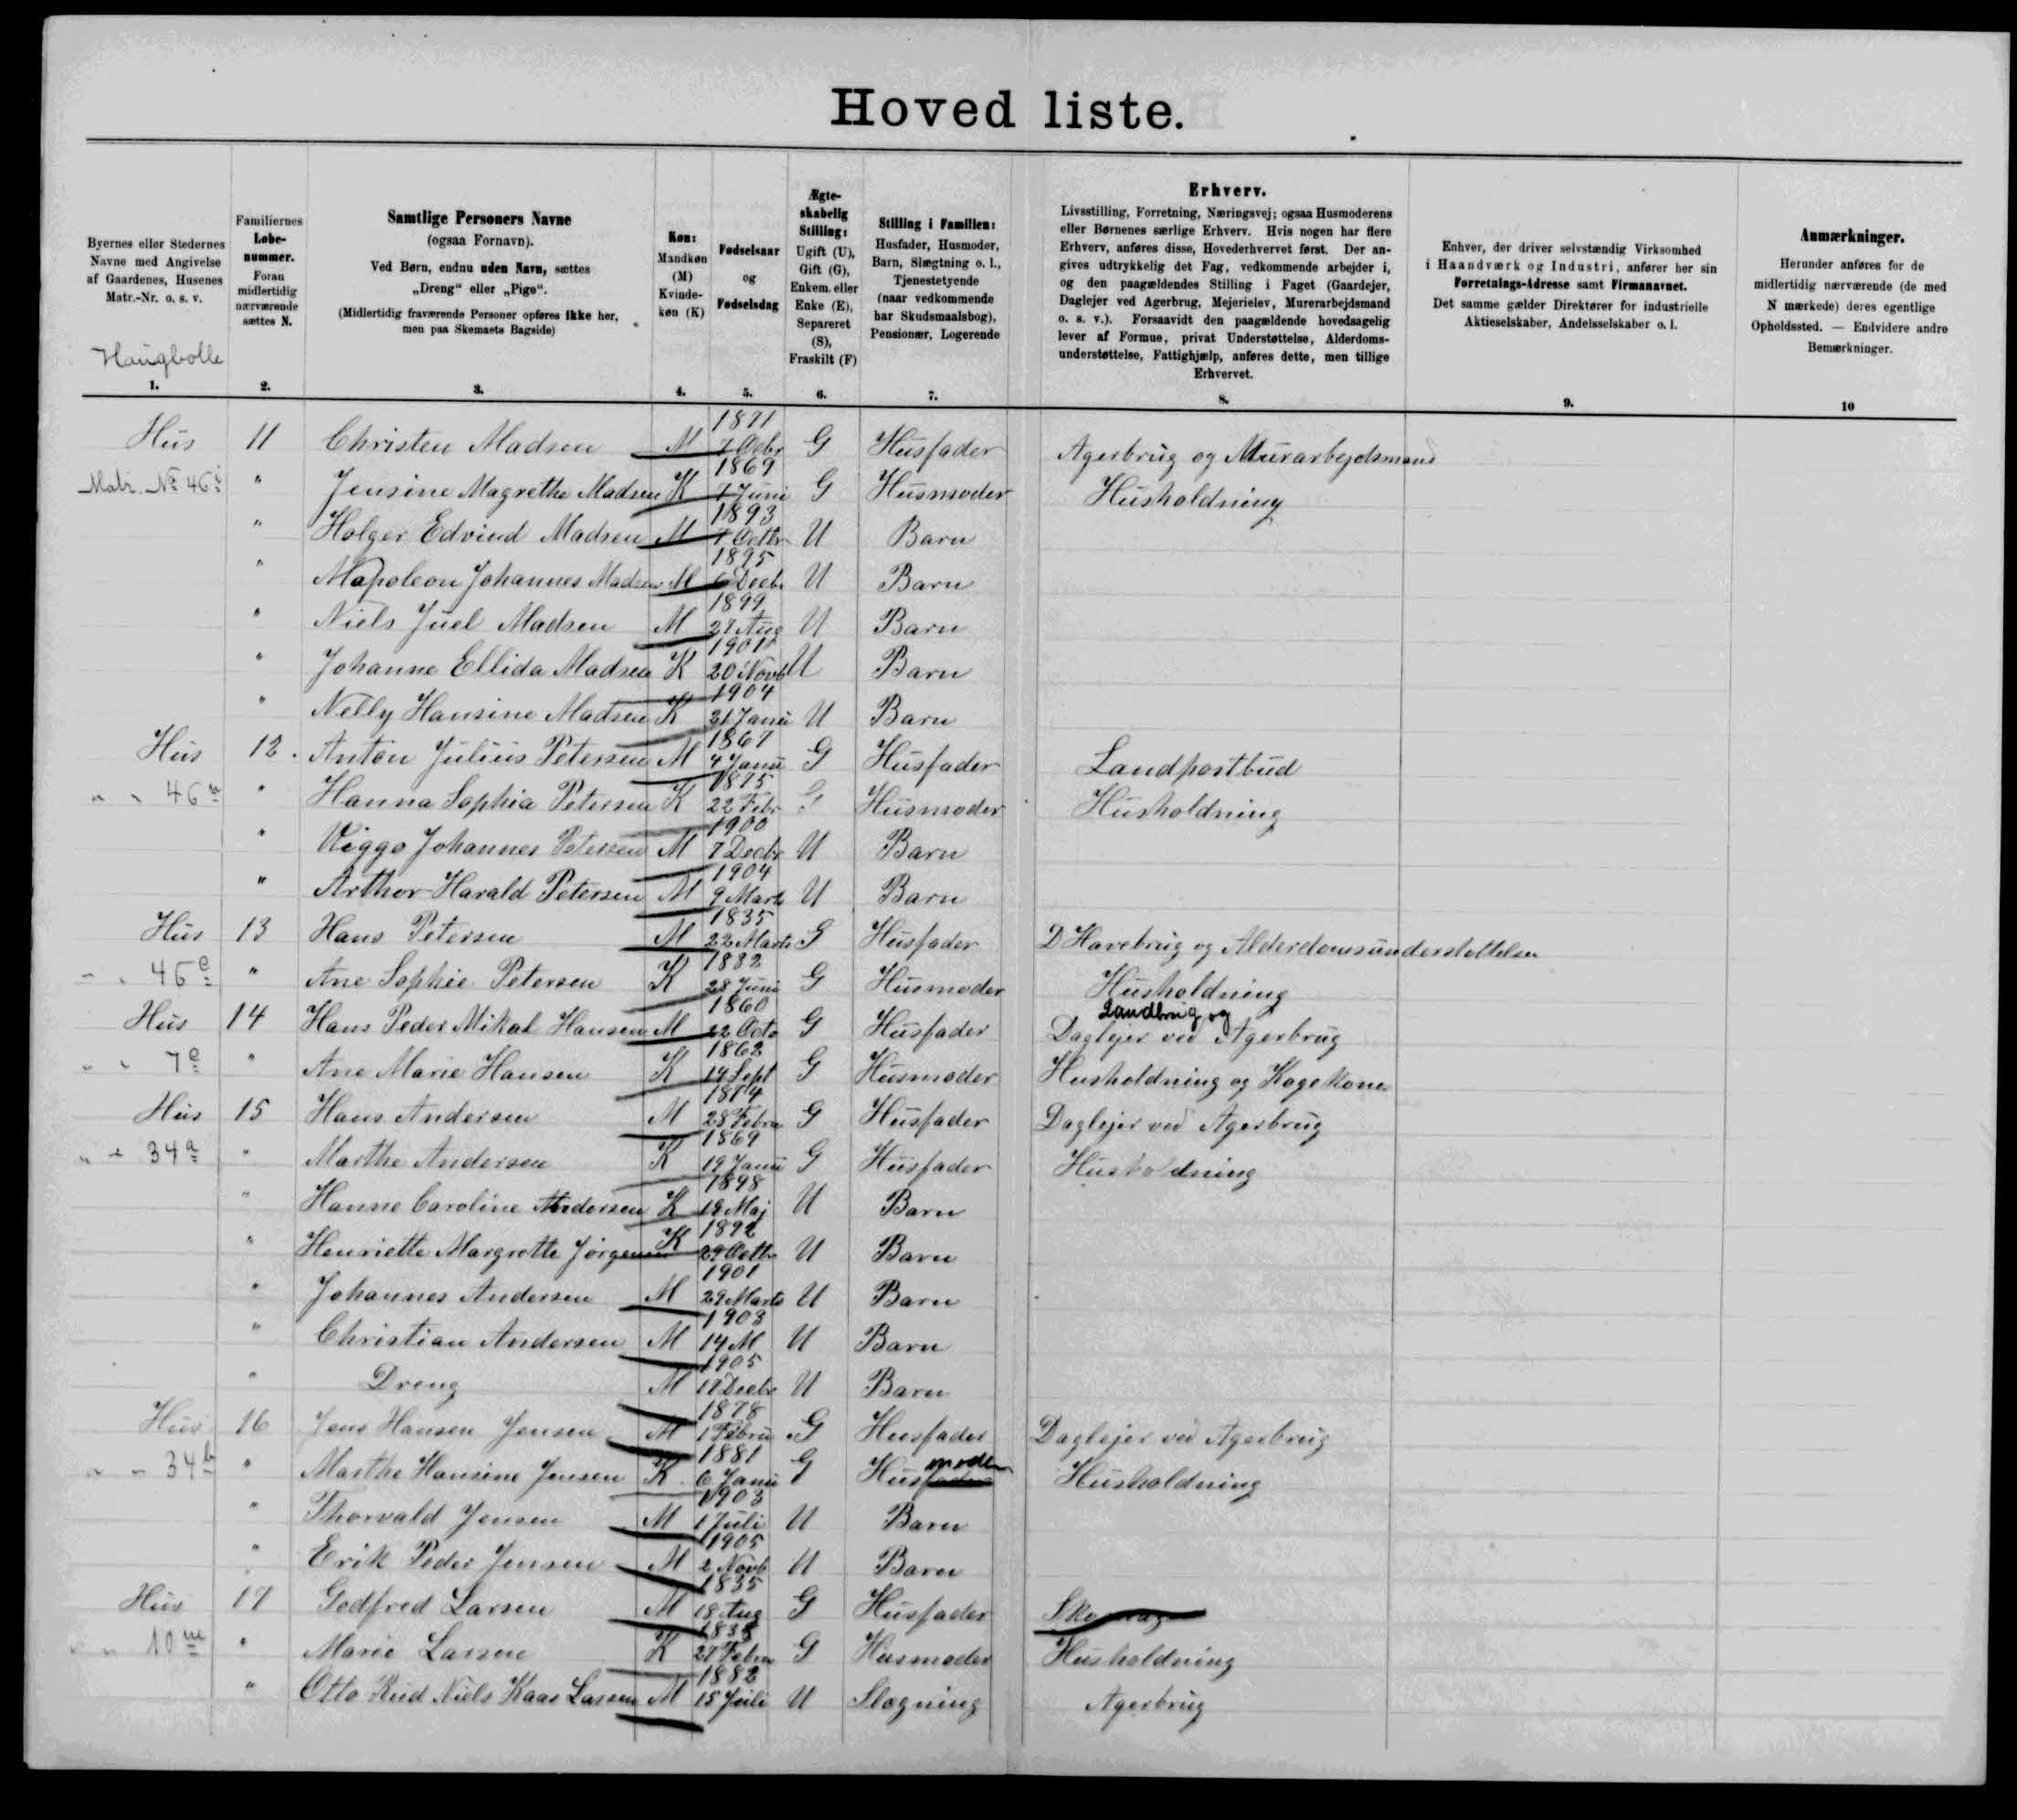 Hoved liste.
Byernes eller Stedernes
Navne med Angivelse
af Gaardenes, Husenes
Matr.-Nr. o. s. v.
Haugbolle
1.
Familiernes
Løbe-
nummer.
Foran
midlertidig
nærværende
sættes N.
2.
Samtlige Personers Navne
(ogsaa Fornavn).
Ved Børn, endnu uden Navn, sættes
„Dreng" eller „Pige".
(Midlertidig fraværende Personer opføres ikke her,
men paa Skemaets Bagside)
3.
Køn:
Mandkøn
(M)
Kvinde-
køn (K)
4.
Fødselsaar
og
Fødselsdag
5.
Ægte-
skabelig
Stilling:
Ugift (U),
Gift (G),
Enkem. eller
Enke (E),
Separeret
(S),
Fraskilt (F)
6.
Stilling i Familien:
Husfader, Husmoder,
Barn, Slægtning o. l.,
Tjenestetyende
(naar vedkommende
har Skudsmaalsbog),
Pensionær, Logerende
7.
Erhverv.
Livsstilling, Forretning, Næringsvej; ogsaa Husmoderens
eller Børnenes særlige Erhverv. Hvis nogen har flere
Erhverv, anføres disse, Hovederhvervet først. Der an-
gives udtrykkelig det Fag, vedkommende arbejder i,
og den paagældendes Stilling i Faget (Gaardejer,
Daglejer ved Agerbrug, Mejerielev, Murerarbejdsmand
o. s. v.). Forsaavidt den paagældende hovedsagelig
lever af Formue, privat Understøttelse, Alderdoms-
understøttelse, Fattighjælp, anføres dette, men tillige
Erhvervet.
8.
Enhver, der driver selvstændig Virksomhed
i Haandværk og Industri, anfører her sin
Forretnings-Adresse samt Firmanavnet.
Det samme gælder Direktører for industrielle
Aktieselskaber, Andelsselskaber o. l.
9.
Anmærkninger.
Herunder anføres for de
midlertidig nærværende (de med
N mærkede) deres egentlige
Opholdssted. — Endvidere andre
Bemærkninger.
10
Hus 11 Christen Madsen M 1871 7 Octbr G Husfader Agerbrug og Murarbejdsmand
Matr. No 46i " Jensine Magrethe Madsen K 1869 7 Juni G Husmoder Husholdning
" Holger Edvind Madsen M 1893 7 Octbr U Barn
" Napoleon Johannes Madsen M 1895 6 Decbr U Barn
" Niels Juel Madsen M 1899 27 Aug U Barn
" Johanne Ellida Madsen K 1901 20 Novb U Barn
" Nelly Hansine Madsen K 1904 21 Janu U Barn
Hus 12. Anton Julius Petersen M 1867 4 Janu G Husfader Landpostbud
" " 46m " Hanna Sophia Petersen K 1875 22 Febr G Husmoder Husholdning
" Viggo Johannes Petersen M 1900 7 Decbr U Barn
" Arthor Harald Petersen M 1904 9 Marts U Barn
Hus 13 Hans Petersen M 1835 22 Marts G Husfader D Havebrug og Alderdomsunderstottelse
" " 46e " Ane Sophie Petersen K 1832 28 Juni G Husmoder Husholdning
Landbrug og
Hus 14 Hans Peder Mikal Hansen M 1860 22 Octo G Husfader Daglejer ved Agerbrug
" " 7e " Ane Marie Hansen K 1862 14 Sept G Husmoder Husholdning og Kogekone
Hus 15 Hans Andersen M 1874 28 Febru G Husfader Daglejer ved Agerbrug
" " 34a " Marthe Andersen K 1869 19 Janu G Husfader Husholdning
" Hanne Caroline Andersen K 1898 19 Maj U Barn
" Henriette Margrette Jørgensen K 1892 29 Octbr U Barn
" Johannes Andersen M 1901 29 Marts U Barn
" Christian Andersen M 1903 14 M U Barn
" Dreng M 1905 17 Decbr U Barn
Hus 16 Jens Hansen Jensen M 1878 1 Febru G Husfader Daglejer ved Agerbrug
" " 34b " Marthe Hansine Jensen K 1881 6 Janu G Husmoder Husholdning
" Thorvald Jensen M 1903 1 Juli U Barn
" Erik Peder Jensen M 1905 2 Novb U Barn
Hus 17 Godfred Larsen M 1835 18 Aug G Husfader
" " 10m " Marie Larsen K 27 Febru G Husmoder Husholdning
" Otto Rud Niels Kaas Larsen M 1882 15 Juli U Slogning Agerbrug